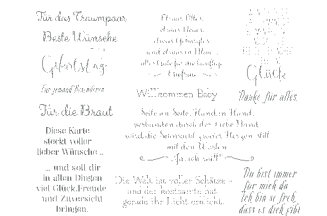 Für das Traumpaar
Beste Wünsche
Geburtstag
Für jemand Besonderen
Für die Braut
Diese Karte
steckt voller
lieber Wünsche ...
... und soll dir
in allen Dingen
viel Glück, Freude
und Zuversicht
bringen.
Etwas Altes,
etwas Neues,
etwas Geborgtes
und etwas in Blau ...
Willkommen Baby
Seite an Seite, Hand in Hand,
verbunden durch der Liebe Band,
wird die Sehnsucht zweier Herzen still
mit den Worten
„Ja, ich will!“
Die Welt ist voller Schätze -
und das kostbarste hat
gerade ihr Licht erblickt.
Glück
Danke für alles.
Du bist immer
für mich da
ich bin so froh,
dass es dich gibt